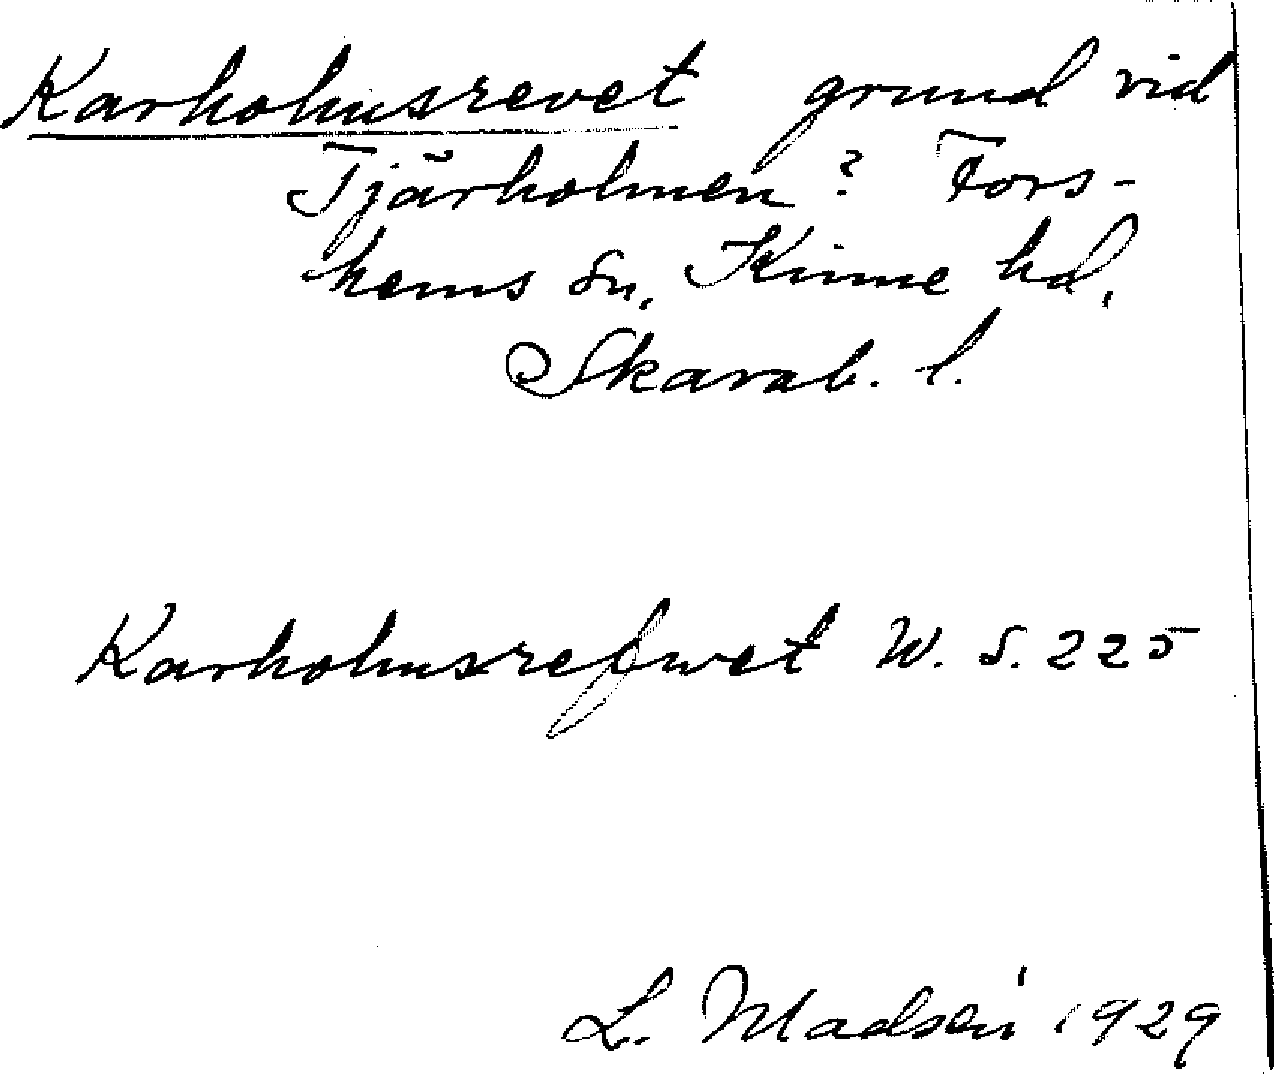 Karholmsrevet grund vid
Tjärholmen? Fors-
hems sn, Kinne hd,
Skarab. l.
Karholmsrefwet W. S. 225
L. Madsén 1929